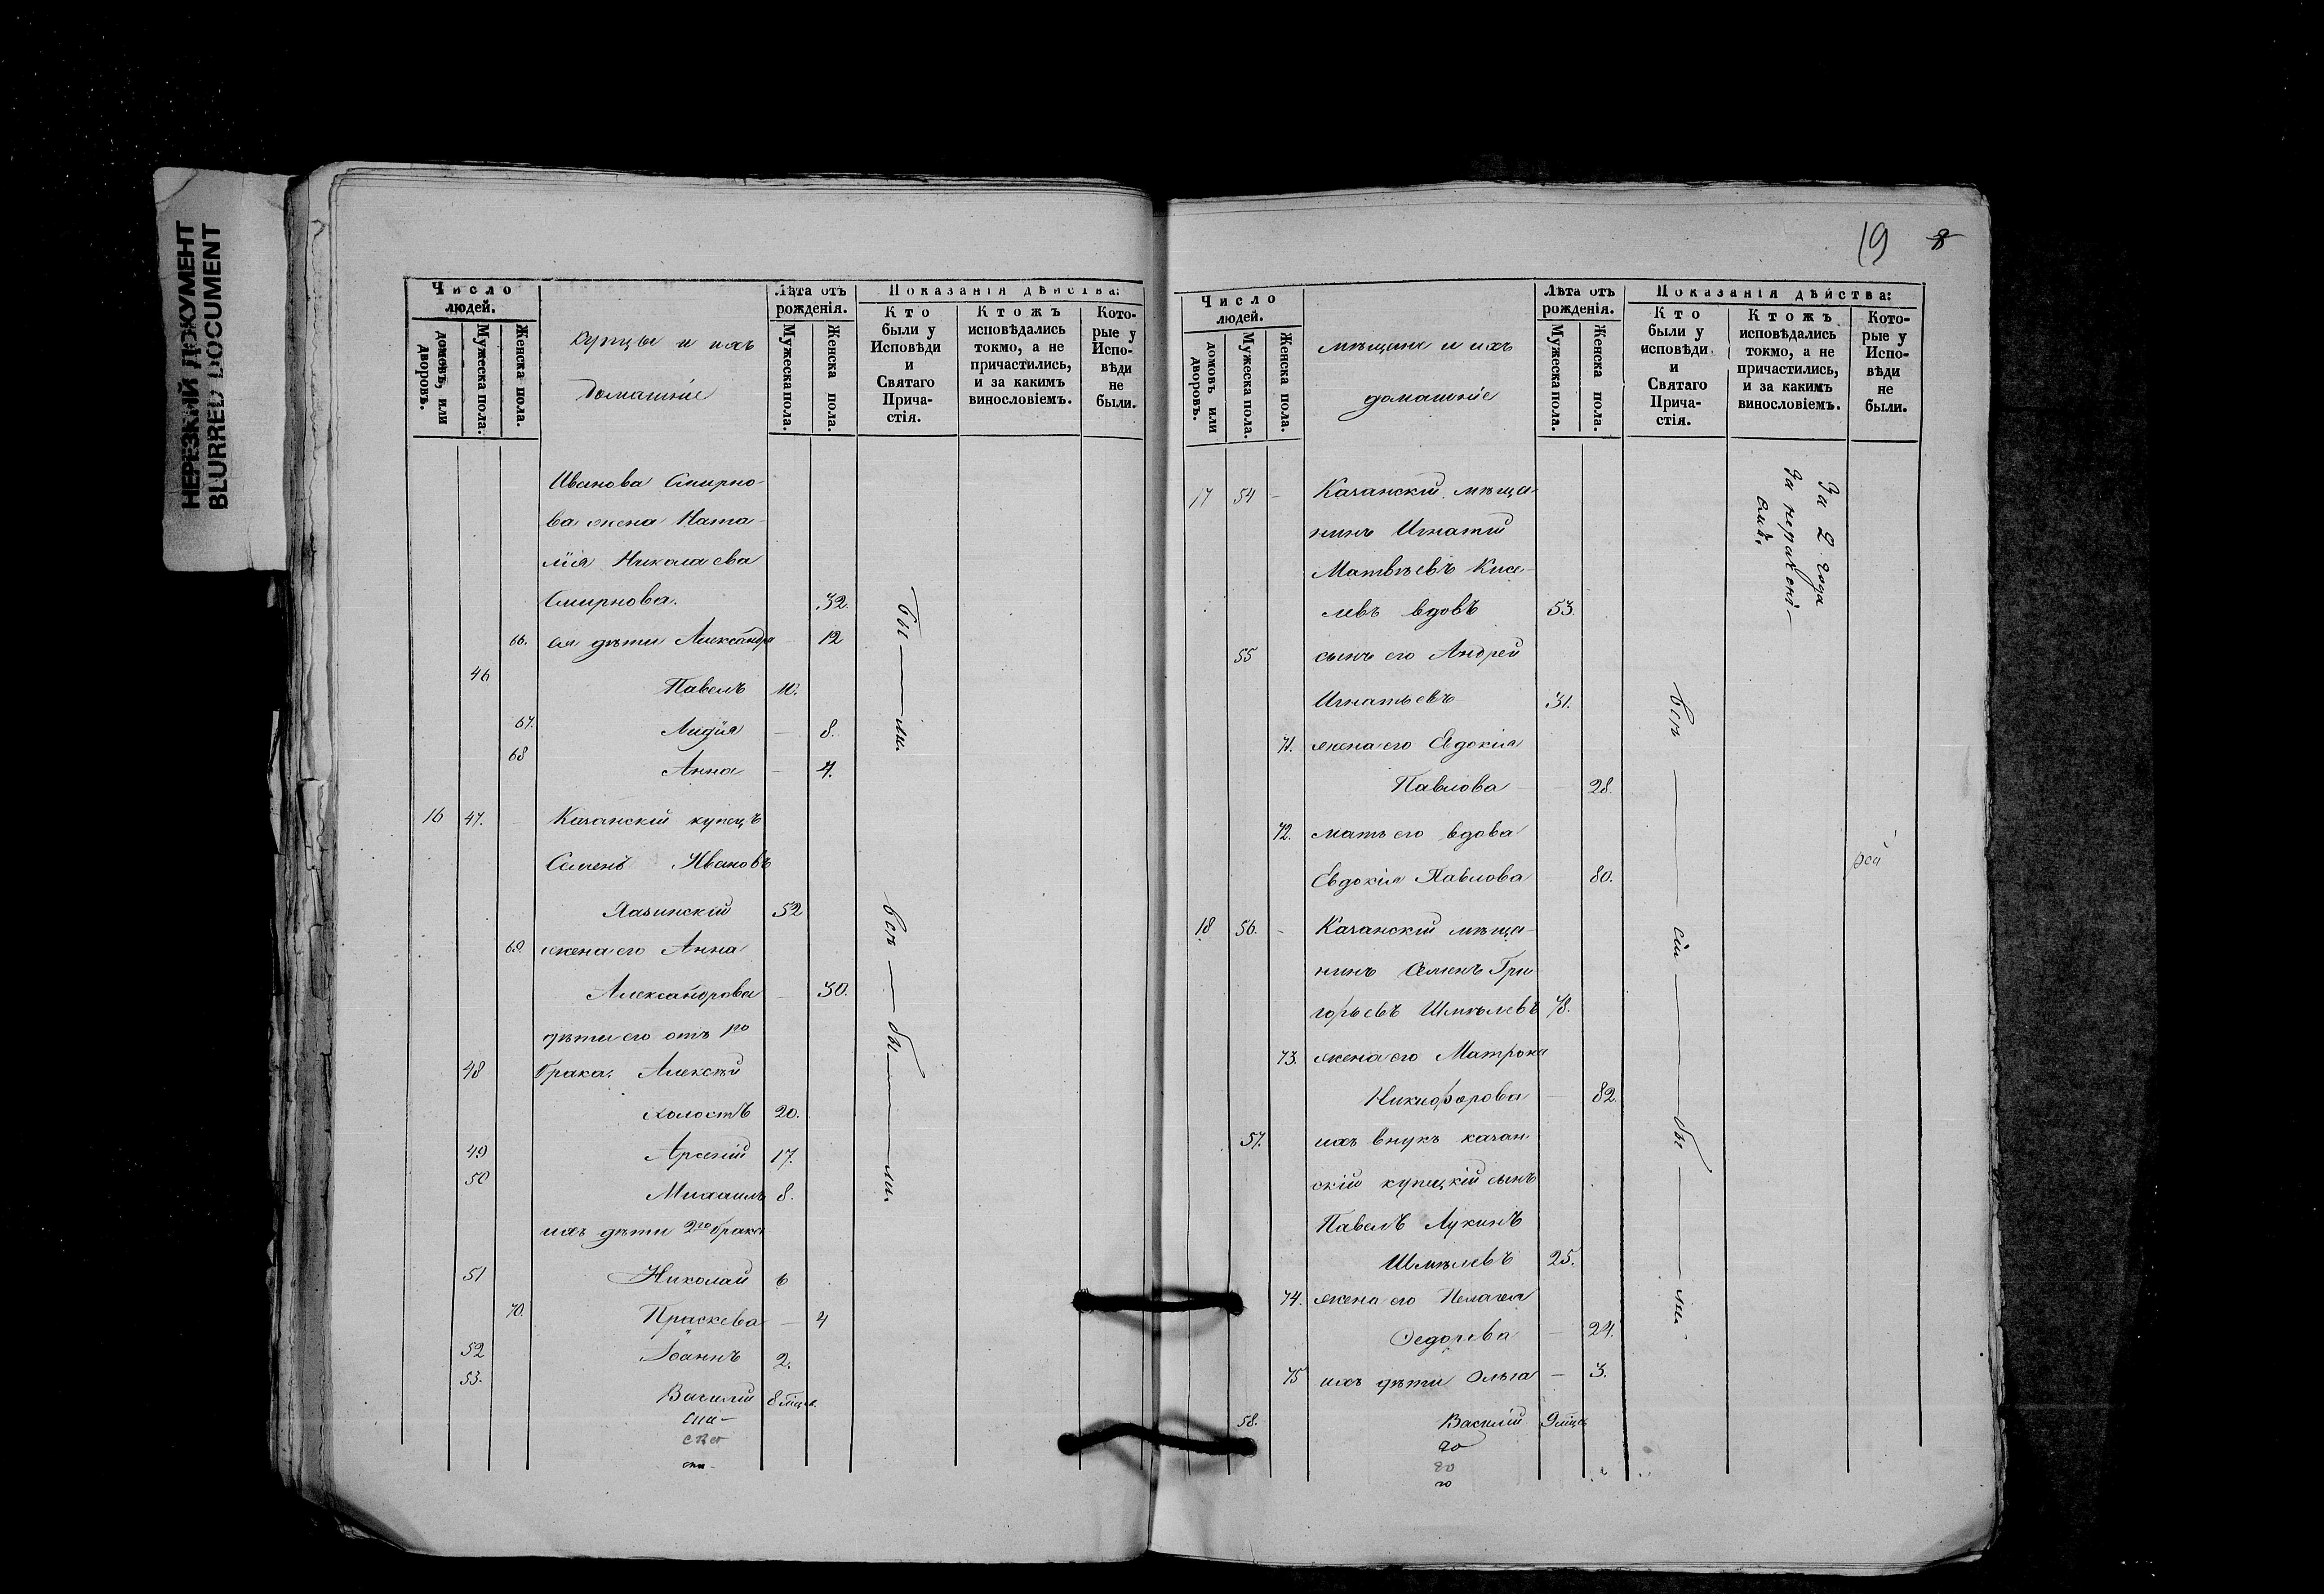 НЕРЕЗКИЙ ДОКУМЕНТ
BLURRED DOCUMENT
Число людей.
домовъ, или дворовъ.
Мужеска пола.
Женска пола.
купцы и ихъ
домашніе
Лѣта отъ рожденія.
Мужеска пола.
Женска пола.
Показанія дѣйства:
Кто были у Исповѣди и Святаго Прича-стія.
Ктожъ исповѣдались токмо, а не причастились, и за какимъ винословіемъ.
Кото-рые у Испо-вѣди не были.
Иванова Смирно-
ва жена Ната-
лія Николаева
Смирнова. 32.
66. ея дѣти Александра — 12
46 Павелъ 10.
67. Лидія — 8.
68 Анна — 4.
бы — ли.
16 47. — Казанскій купецъ
Семенъ Ивановъ
52
69. жена его Анна
Александрова — 30.
дѣти его отъ 1го
48 брака. Алексѣй
холостъ 20.
49 Арсеній 17.
50 Михаилъ 8.
ихъ дѣти 2го брака
51 Николай 6
70. Праскева — 4
52 Іоаннъ 2.
53. Василій 8 мѣц.
всѣ — бы — ли.
19 8
Число людей.
домовъ или дворовъ.
Мужеска пола.
Женска пола.
мѣщане и ихъ
домашніе
Лѣта отъ рожденія.
Мужеска пола.
Женска пола.
Показанія дѣйства:
Кто были у исповѣди и Святаго Прича-стія.
Ктожъ исповѣдались токмо, а не причастились, и за какимъ винословіемъ.
Кото-рые у Испо-вѣди не были.
17 54 — Казанскій мѣща-
нинъ Игнатій
Матвѣевъ Кисе-
левъ вдовъ 53.
55 сынъ его Андрей
Игнатьевъ 31.
71. жена его Евдокія
Павлова — 28.
72. мать его вдова
Евдокія Павлова 80.
За 2 года
18 56. — Казанскій мѣща-
нинъ Семенъ Гри-
горьевъ Шмѣлевъ 78.
73. жена его Матрона
Никифорова — 82.
57. ихъ внукъ казан-
скій купецкій сынъ
Павелъ Лукинъ
Шмѣлевъ 25.
74. жена его Пелагея
Федорова — 24.
75 ихъ дѣти Ольга — 3.
58. Василій 9 мѣц.
всѣ — сіи — бы — ли.